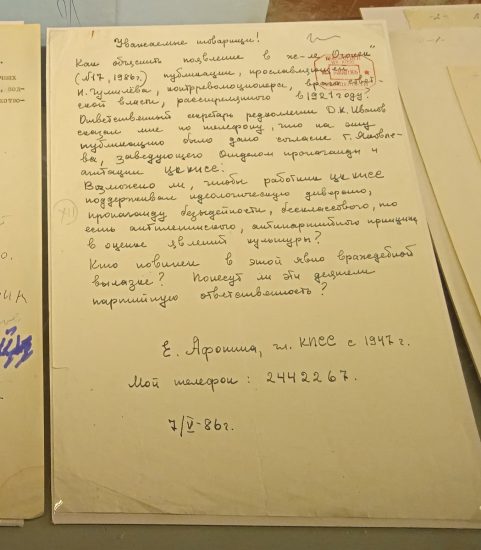 Уважаемые товарищи!
Как объяснить появление в ж-ле „Огонек"
(№17, 1986г.) публикации, прославляющей
Н. Гумилёва, контрреволюционера, врага совет-
ской власти, расстрелянного в 1921 году?
Ответственный секретарь редколлегии Д.К. Иванов
сказал мне по телефону, что на эту
публикацию было дано согласие Г. Яковле-
ва, заведующего Отделом пропаганды и
агитации ЦК КПСС.
Возможно ли, чтобы работники ЦК КПСС
поддерживали идеологическую диверсию,
пропаганду безыдейности, бесклассового, то
есть антиленинского, антипартийного принципа
в оценке явлений культуры?
Кто повинен в этой явно враждебной
вылазке? Понесут ли эти деятели
партийную ответственность?
Е. Афонина, чл. КПСС с 1947 г.
Мой телефон: 2442267.
7/V-86г.
XII
-2-